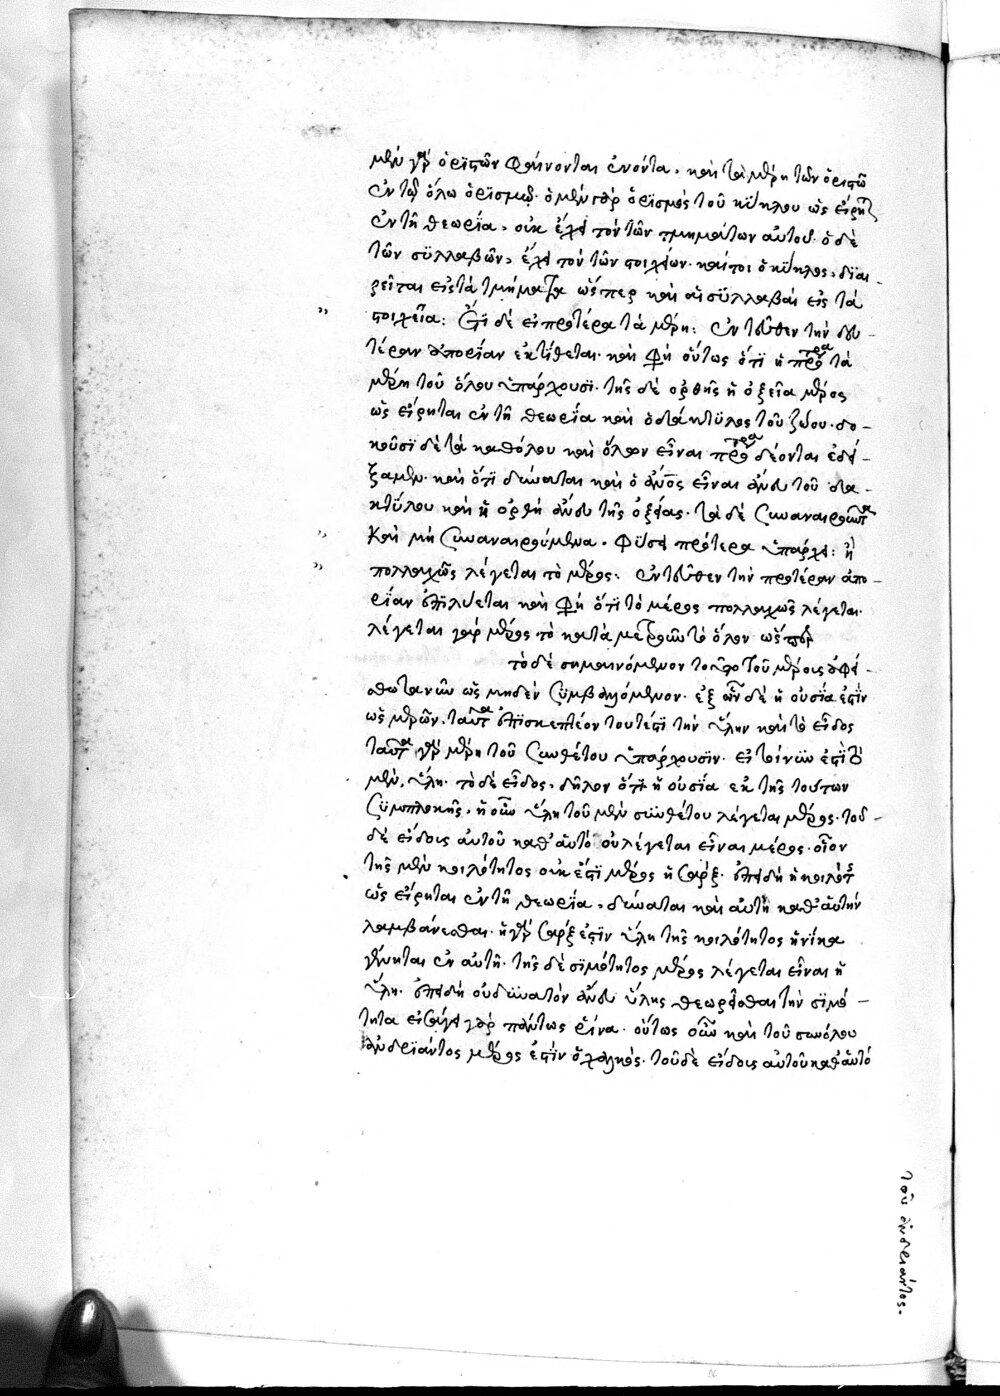 μὲν γὰρ ὁριστῶν φαίνονται ἐνόντα. καὶ τὰ μέρη τῶν ὁριστῶ
ἐν τῷ ὅλω ὁρισμῷ. ὁ μὲν γὰρ ὁρισμὸς τοῦ κύκλου ὡς εἴρητ
ἐν τῆ θεωρία, οὐκ ἔχει τὸν τῶν τμημάτων αὐτοῦ. ὁ δὲ
τῶν συλλαβῶν, ἔχει τὸν τῶν στοιχείων. καίτοι ὁ κύκλος, διαι-
ρεῖται εἰς τὰ τμήματα ὥσπερ καὶ αἱ συλλαβαὶ εἰς τὰ
στοιχεῖα: Ἔτι δὲ εἰ πρότερα τὰ μέρη: ἐντεῦθεν τὴν δευ-
τέραν ἀπορίαν ἐκτίθεται. καὶ φη οὕτως ὅτι ἢ πρότερα τὰ
μέρη τοῦ ὅλου ὑπάρχουσι. τῆς δὲ ὀρθῆς ἡ ὀξεῖα μέρος
ὡς εἴρηται ἐν τῆ θεωρία καὶ ὁ δάκτυλος τοῦ ζώου. δο-
κοῦσι δὲ τὰ καθόλου καὶ ὅλον εἶναι πρότερα δέονται ἐδεί-
ξαμεν. καὶ ὅτι δύναται καὶ ὁ ἄνος εἶναι ἄνευ τοῦ δα-
κτύλου καὶ ἡ ὀρθὴ ἄνευ τῆς ὀξείας. τὰ δὲ συναναιροῦντα
καὶ μὴ συναναιρούμενα. φύσει πρότερα ὑπάρχει: ἢ
πολλαχῶς λέγεται τὸ μέρος: ἐντεῦθεν τὴν προτέραν ἀπο-
ρίαν ἐπιλύεται καὶ φη ὅτι τὸ μέρος πολλαχῶς λέγεται.
λέγεται γὰρ μέρος τὸ καταμετροῦν τὸ ὅλον ὥσπερ
τὸ δὲ σημαινόμενον τοῦτο τοῦ μέρους ἀφεί-
σθω τανῦν ὡς μηδὲν συμβαλόμενον. ἐξ ὧν δὲ ἡ οὐσία ἐστὶν
ὡς μερῶν. ταῦτα ἐπισκεπτέον τουτέστι τὴν ὕλην καὶ τὸ εἶδος
ταῦτα γὰρ μέρη τοῦ συνθέτου ὑπάρχουσιν. εἰ τοίνυν ἐστὶ τὸ
μὲν, ὕλη. τὸ δὲ εἶδος. δῆλον ὅτι ἡ οὐσία ἐκ τῆς τούτων
συμπλοκῆς. ἡ οὖν ὕλη τοῦ μὲν συνθέτου λέγεται μέρος. τοῦ-
δὲ εἴδους αὐτοῦ καθ᾽ αὑτὸ οὐ λέγεται εἶναι μέρος. οἷον
τῆς μὲν κοιλότητος οὐκ ἔστι μέρος ἡ σάρξ. ἐπειδὴ ἡ κοιλότ
ὡς εἴρηται ἐν τῆ θεωρία, δύναται καὶ αὐτὴ καθ᾽ αὑτὴν
λαμβάνεσθαι. ἡ γὰρ σάρξ ἐστιν ὕλη τῆς κοιλότητος ἡνίκα
γένηται ἐν αὐτῆ. τῆς δὲ σιμότητος μέρος λέγεται εἶναι ἡ
ὕλη. ἐπειδὴ οὐ δυνατὸν ἄνευ ὕλης θεωρεῖσθαι τὴν σιμό-
τητα εἰσάγει γὰρ πάντως ῥῖνα. οὕτως οὖν καὶ τοῦ συνόλου
ἀνδριάντος μέρος ἐστὶν ὁ χαλκός. τοῦ δὲ εἴδους αὐτοῦ καθ᾽ αὑτό
τοῦ ἀνδριάντος.